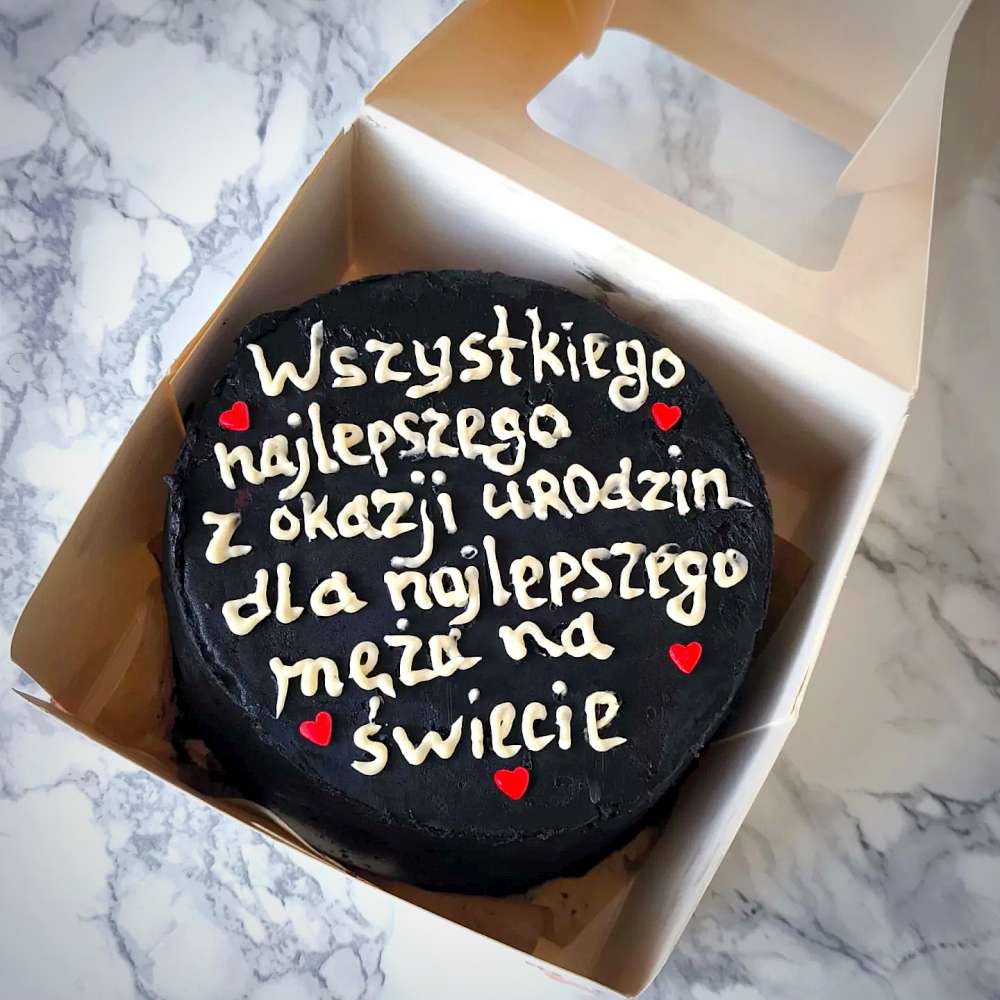 Wszystkiego
najlepszego
z okazji urodzin
dla najlepszego
męża na
świecie